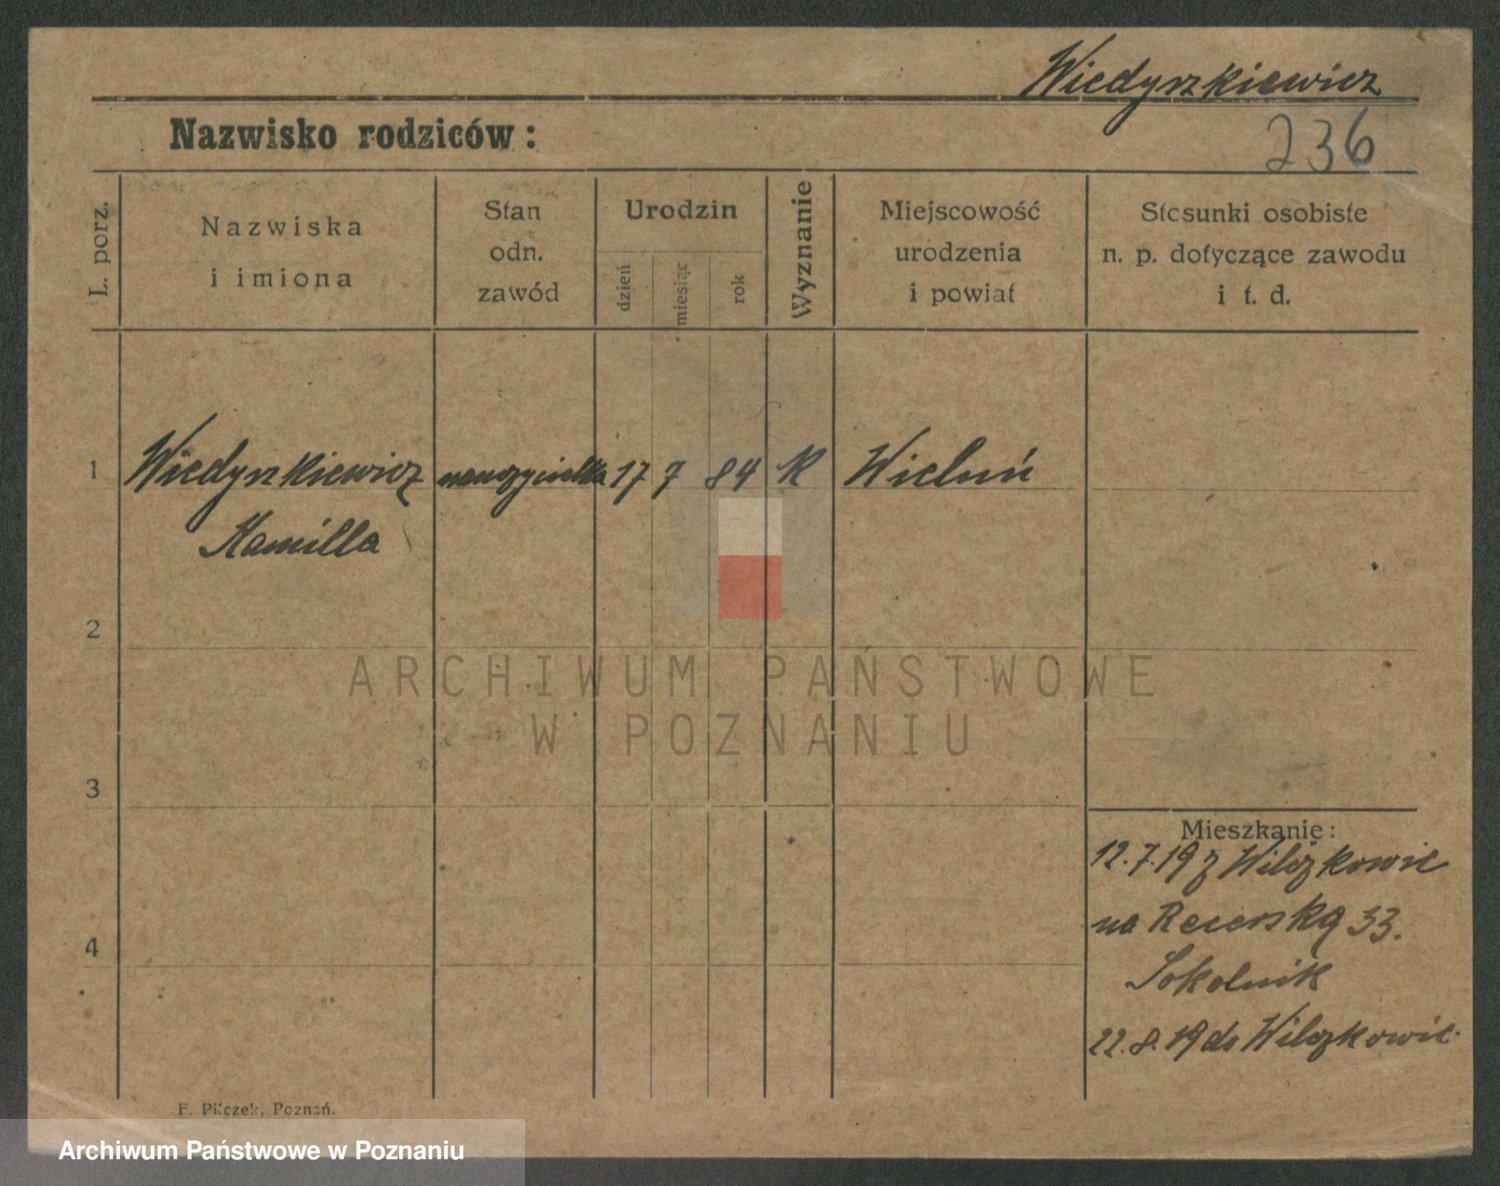 Wiedyszkiewicz
Nazwisko rodziców:
236
L. porz.
Nazwiska
i imiona
Stan
odn.
zawód
Urodzin
dzień
miesiąc
rok
Wyznanie
Miejscowość
urodzenia
i powiat
Stosunki osobiste
n. p. dotyczące zawodu
i t. d.
1 Wiedyszkiewicz nauczycielka 17 7 84 K Wieluń
Kamilla
2
3
4
ARCHIWUM PAŃSTWOWE
W POZNANIU
Mieszkanie:
12.7.19 z Wilczkowic
na 33.
Sokolnik
22.8.19 do Wilczkowic
F. Pilczek, Poznań.
Archiwum Państwowe w Poznaniu